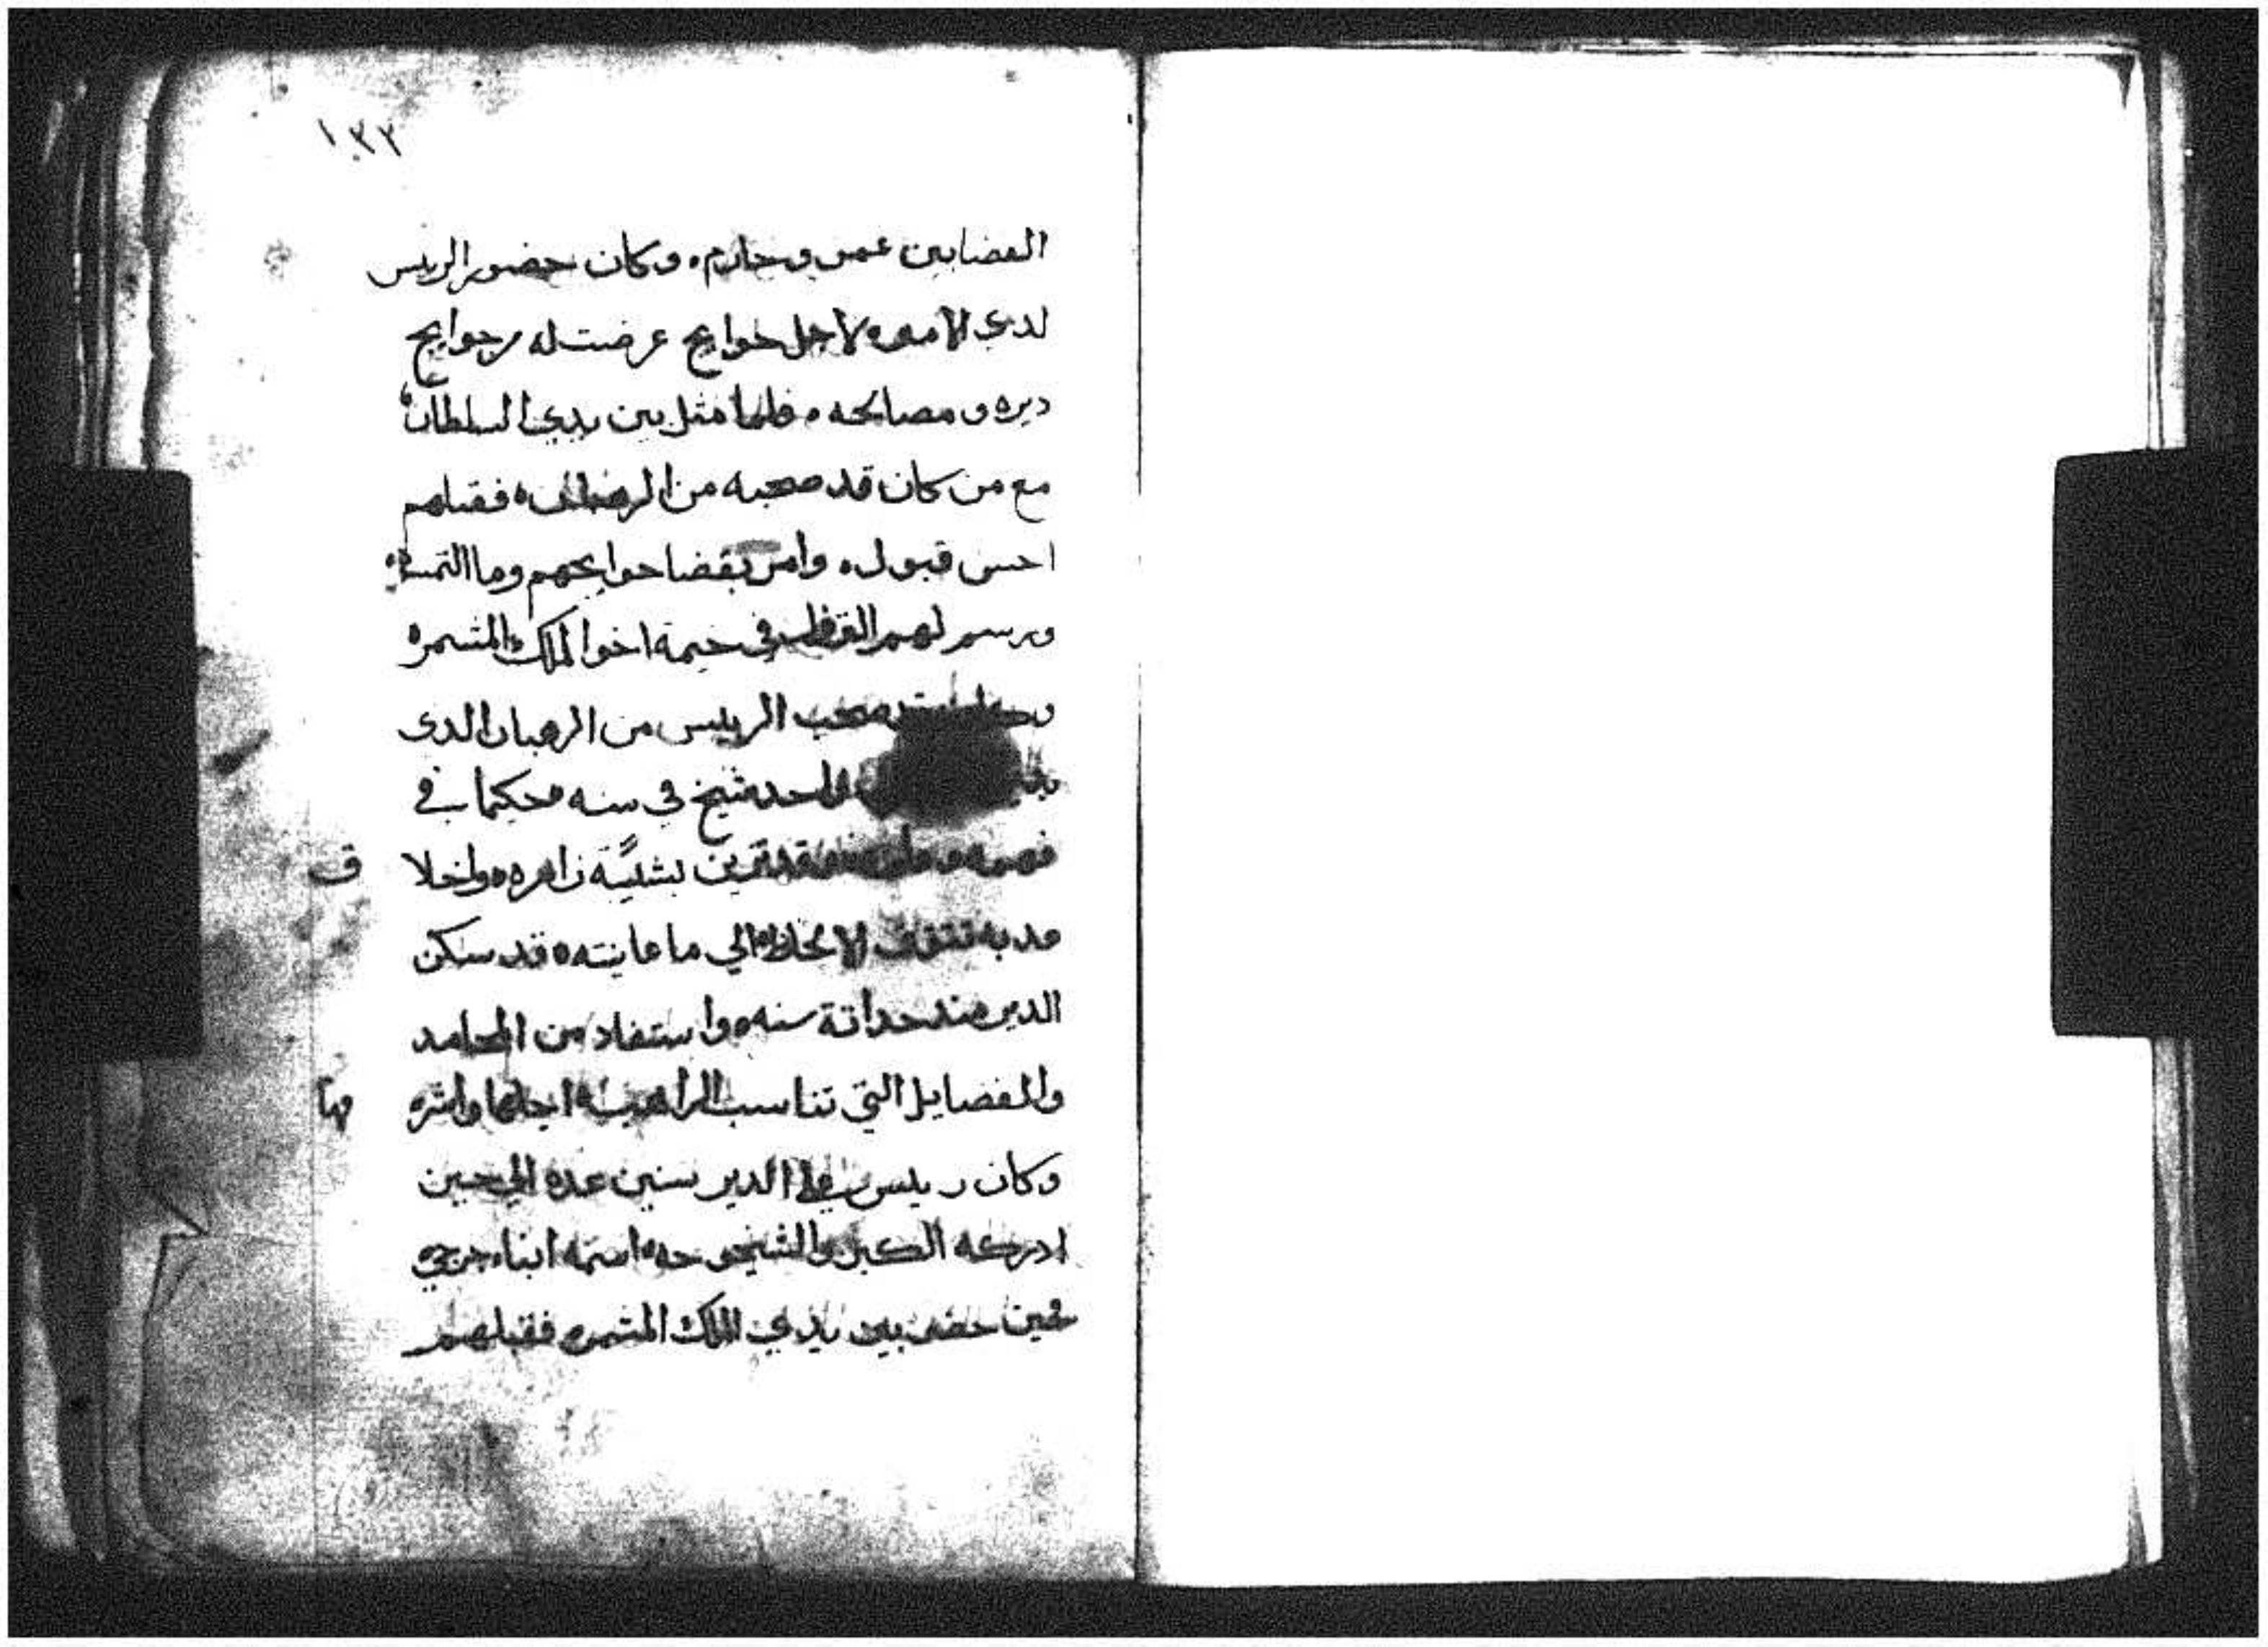 ١٣٢
الفضا بين عمر وحارم، وكان حضور الريس
لدي الامير ه لاجل حوايج عرضت له من حوايج
ديره ومصالحه ه فلما مثل بين يدي السلطان ه
مع من كان قد صحبه من الرهبان ه فقبلهم
احسن قبول ه وامر بقضا حوايجهم وما التمسوه
ورسم لهم في خيمة اخوا الملك المشمر ه
صحب الرييس من الرهبان الدى
واحد شيخ في سنه ه حكيما في
فهمه قد تزين بشيبة زاهره ه واخلا ق
مدبه الالحاظ الي ما عاينته ه قد سكن
الدير مند حداتة سنه ه واستفاد من المحامد
والفضايل التي تناسب الراهب اجلها واشره فها
وكان رييس علي الدير سنين عده الي حين
ادركه الكبر والشيخوخه ه اسمه انبا جرجي
فحين حضر بين يدي الملك المشمر ه فقبلهم